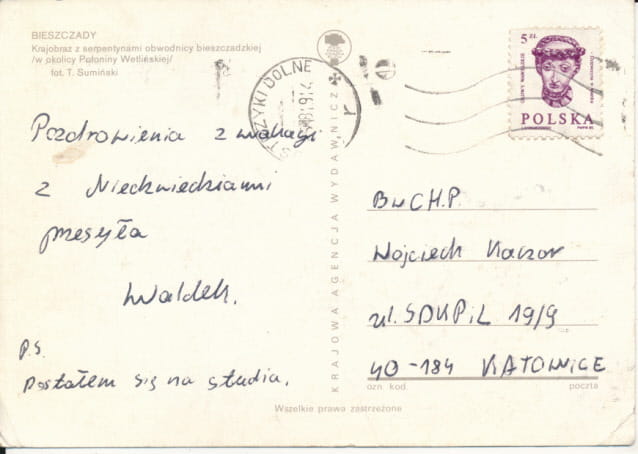 BIESZCZADY
Krajobraz z serpentynami obwodnicy bieszczadzkiej
/w okolicy Połoniny Wetlińskiej/
fot. T. Sumiński
Pozdrowienia z wakacji
z Niedźwiedziami
przesyła
Waldek.
P.S.
Dostałem się na studia.
KRAJOWA AGENCJA WYDAWNICZA
USTRZYKI DOLNE
5 ZŁ
GŁOWY WAWELSKIE
POLSKA
BWCH.P.
Wojciech Kaczor
ul. SDKPiL 19/9
40-184 KATOWICE
ozn kod
poczta
Wszelkie prawa zastrzeżone